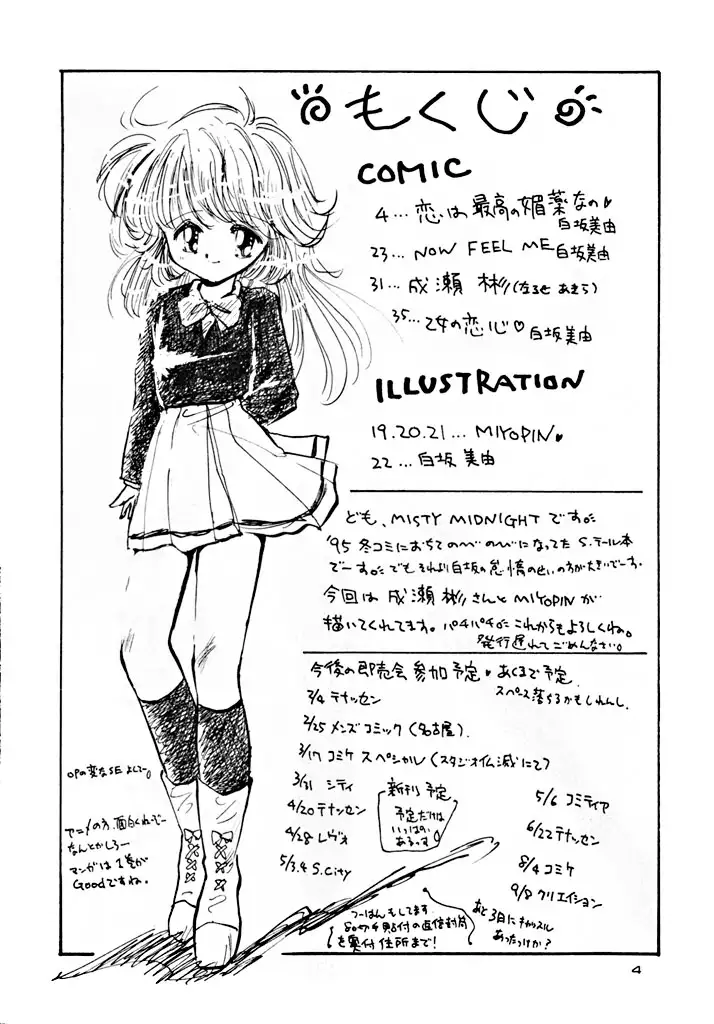 もくじ
COMIC
4...恋は最高の媚薬なの♥
白坂美由
23...NOW FEEL ME 白坂美由
31...成瀬 彬(なるせ あきら)
35...乙女の恋心♡ 白坂美由
ILLUSTRATION
19.20.21...MIYOPIN♥
22...白坂美由
ども、MISTY MIDNIGHTです。
'95冬コミにおちてのべのべになってたS.テール本
でーす。でもそれより白坂の怠惰のせいの方が大きいでーす。
今回は成瀬彬さんとMIYOPINが
描いてくれてます。パチパチ。これからもよろしくね。
発行遅れてごめんなさい。
今後の即売会参加予定♥あくまで予定
スペース落ちるかもしれんし。
2/4 テナッセン
2/25 メンズコミック(名古屋)
3/17 コミケスペシャル(スタジオイム滅にて)
3/31 シティ
4/20 テナッセン
4/28 レヴォ
5/3.4 S.City
新刊予定
予定だけは
いっぱい
あるっす
5/6 コミティア
6/22 テナッセン
8/4 コミケ
9/8 クリエイション
OPの変なSEよしてー。
アニメの方、面白くねーぞー
なんとかしろー
マンガは1巻が
Goodですね。
つーはんもしてます
80切手貼付の返信封筒
を奥付住所まで!
あと3日にキャッスル
あったっけか?
4